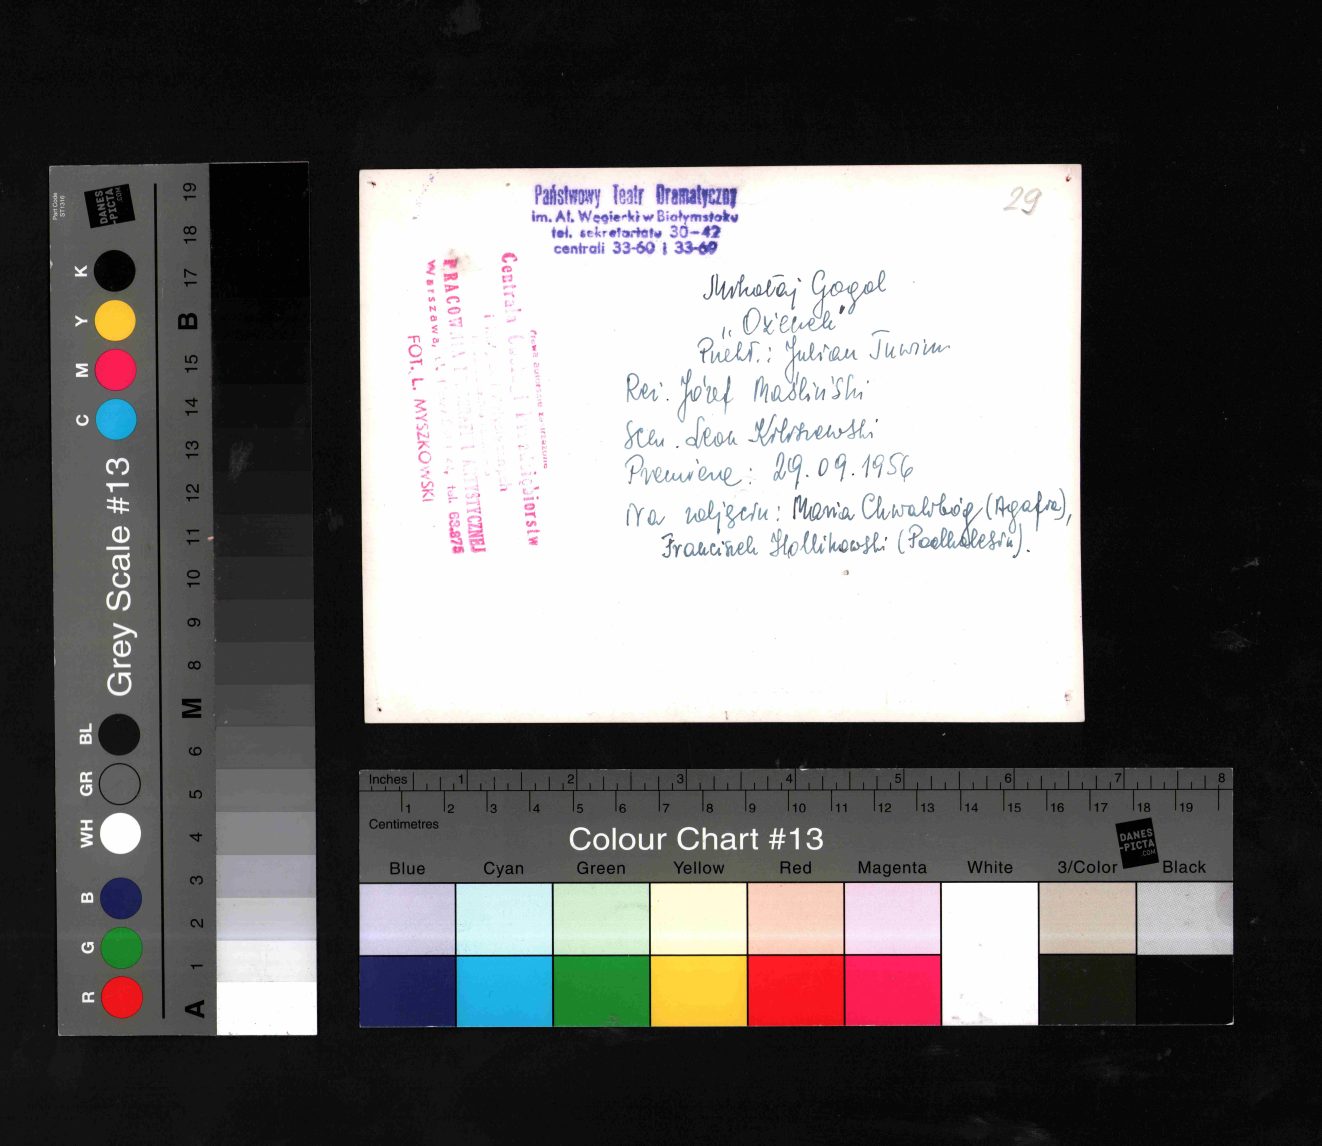 Państwowy Teatr Dramatyczny
im. Al. Węgierki w Białymstoku
tel. sekretariatu 30-42
centrali 33-60 i 33-69
29
Mikołaj Gogol
„Ożenek"
Przekł.: Julian Tuwim
Reż. Józef Maśliński
Scen. Leon
Premiera: 29.09.1956
Na zdjęciu: Maria Chwalibóg (Agafia),
Franciszek (Podkolesin).
Centrala
PRACOWNIA ARTYSTYCZNEJ
Warszawa, tel. 68-875
FOT. L. MYSZKOWSKI
Part Code
ST1316
DANES
-PICTA
.COM
Grey Scale #13
K
Y
M
C
BL
GR
WH
B
G
R
19
18
17
B
15
14
13
12
11
10
9
8
M
6
5
4
3
2
1
A
Inches 1 2 3 4 5 6 7 8
1 2 3 4 5 6 7 8 9 10 11 12 13 14 15 16 17 18 19
Centimetres
Colour Chart #13
DANES
-PICTA
.COM
Blue Cyan Green Yellow Red Magenta White 3/Color Black